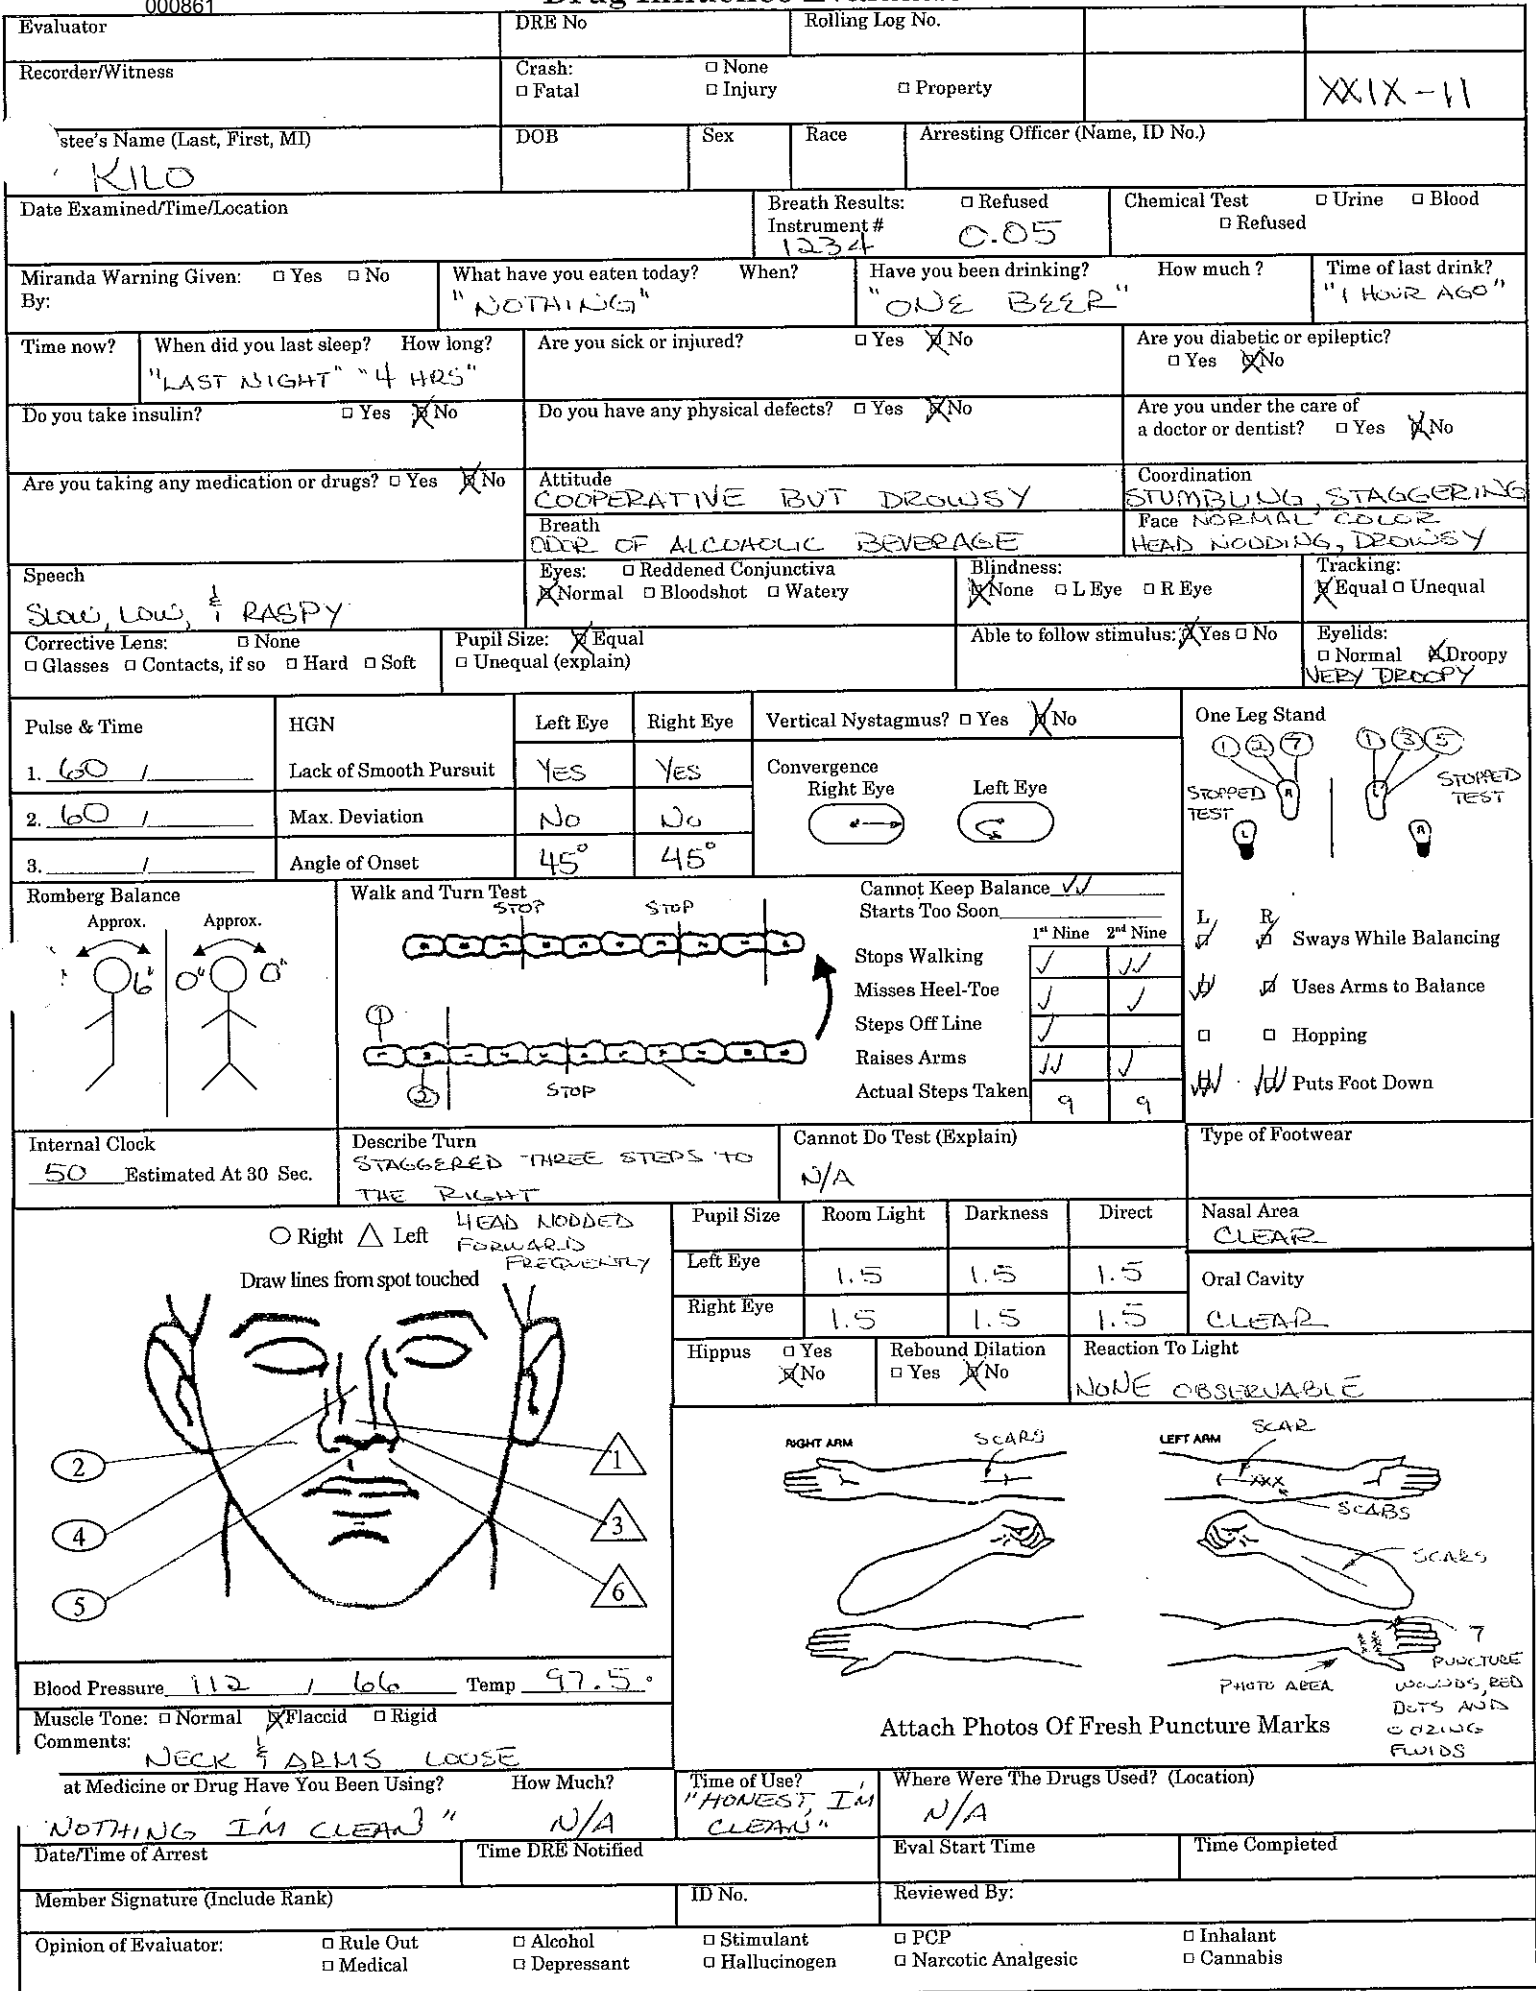 000861
Evaluator
DRE No
Rolling Log No.
Recorder/Witness
Crash:
□ None
□ Fatal
□ Injury
□ Property
XXIX-11
stee's Name (Last, First, MI)
KILO
DOB
Sex
Race
Arresting Officer (Name, ID No.)
Date Examined/Time/Location
Breath Results:
□ Refused
Instrument #
1234
0.05
Chemical Test
□ Urine □ Blood
□ Refused
Miranda Warning Given: □ Yes □ No
By:
What have you eaten today? When?
"NOTHING"
Have you been drinking? How much ?
"ONE BEER"
Time of last drink?
"1 HOUR AGO"
Time now?
When did you last sleep? How long?
"LAST NIGHT" "4 HRS"
Are you sick or injured? □ Yes ☒ No
Are you diabetic or epileptic?
□ Yes ☒ No
Do you take insulin? □ Yes ☒ No
Do you have any physical defects? □ Yes ☒ No
Are you under the care of
a doctor or dentist? □ Yes ☒ No
Are you taking any medication or drugs? □ Yes ☒ No
Attitude
COOPERATIVE BUT DROWSY
Coordination
STUMBLING, STAGGERING
Breath
ODOR OF ALCOHOLIC BEVERAGE
Face NORMAL COLOR
HEAD NODDING, DROWSY
Speech
SLOW, LOW, & RASPY
Eyes: □ Reddened Conjunctiva
☒ Normal □ Bloodshot □ Watery
Blindness:
☒ None □ L Eye □ R Eye
Tracking:
☒ Equal □ Unequal
Corrective Lens: □ None
□ Glasses □ Contacts, if so □ Hard □ Soft
Pupil Size: ☒ Equal
□ Unequal (explain)
Able to follow stimulus: ☒ Yes □ No
Eyelids:
□ Normal ☒ Droopy
VERY DROOPY
Pulse & Time
1. 60 /
2. 60 /
3. /
HGN Left Eye Right Eye
Lack of Smooth Pursuit YES YES
Max. Deviation No No
Angle of Onset 45° 45°
Vertical Nystagmus? □ Yes ☒ No
Convergence
Right Eye Left Eye
One Leg Stand
1 2 7 1 3 5
STOPPED
TEST
STOPPED
TEST
R L
L R
Romberg Balance
Approx. Approx.
6" 0" 0"
Walk and Turn Test
STOP STOP
1
2
STOP
Cannot Keep Balance ✓✓
Starts Too Soon
1st Nine 2nd Nine
Stops Walking ✓ ✓✓
Misses Heel-Toe ✓ ✓
Steps Off Line ✓
Raises Arms ✓✓ ✓
Actual Steps Taken 9 9
L R
Sways While Balancing
Uses Arms to Balance
□ □ Hopping
Puts Foot Down
Internal Clock
50 Estimated At 30 Sec.
Describe Turn
STAGGERED THREE STEPS TO
THE RIGHT
Cannot Do Test (Explain)
N/A
Type of Footwear
○ Right △ Left
HEAD NODDED
FORWARD
FREQUENTLY
Draw lines from spot touched
2
4
5
1
3
6
Pupil Size Room Light Darkness Direct
Left Eye 1.5 1.5 1.5
Right Eye 1.5 1.5 1.5
Nasal Area
CLEAR
Oral Cavity
CLEAR
Hippus □ Yes
☒ No
Rebound Dilation
□ Yes ☒ No
Reaction To Light
NONE OBSERVABLE
RIGHT ARM
SCARS
LEFT ARM
SCAR
XXX
SCABS
SCARS
PHOTO AREA
7
PUNCTURE
WOUNDS, RED
DOTS AND
OOZING
FLUIDS
Attach Photos Of Fresh Puncture Marks
Blood Pressure 112 / 66 Temp 97.5°
Muscle Tone: □ Normal ☒ Flaccid □ Rigid
Comments:
NECK & ARMS LOOSE
at Medicine or Drug Have You Been Using? How Much?
"NOTHING I'M CLEAN" N/A
Time of Use?
"HONEST, I'M
CLEAN"
Where Were The Drugs Used? (Location)
N/A
Date/Time of Arrest
Time DRE Notified
Eval Start Time
Time Completed
Member Signature (Include Rank)
ID No.
Reviewed By:
Opinion of Evaluator:
□ Rule Out □ Alcohol □ Stimulant □ PCP □ Inhalant
□ Medical □ Depressant □ Hallucinogen □ Narcotic Analgesic □ Cannabis